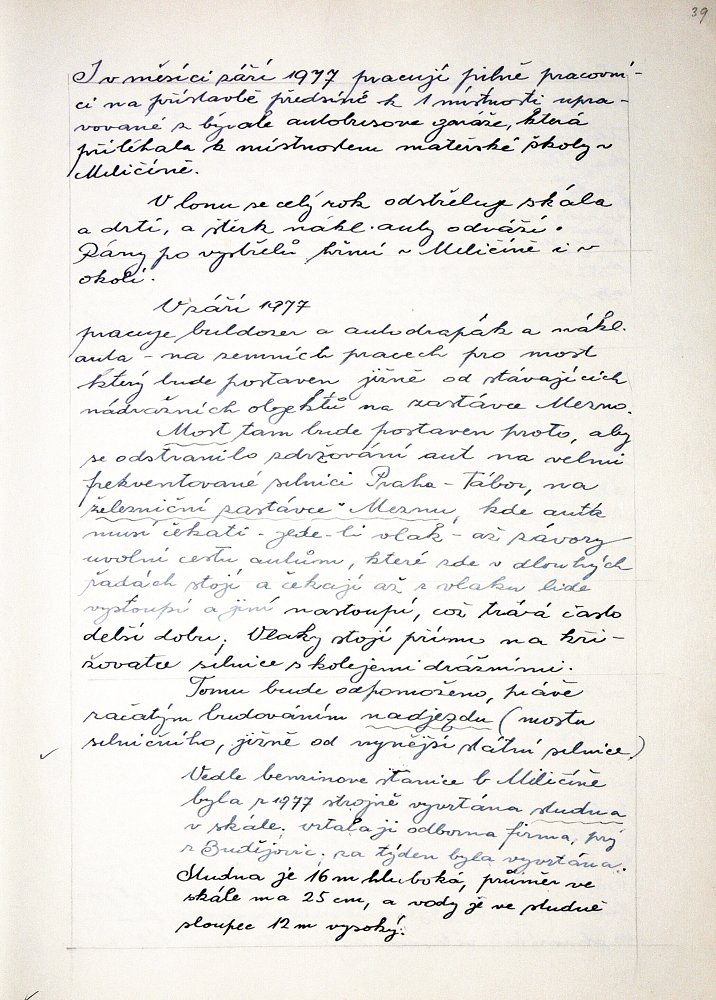 39
I v měsíci září 1977 pracují pilně pracovní-
ci na přístavbě předsíně k 1 místnosti upra-
vované z bývalé autobusové garáže, která
přiléhala k místnostem mateřské školy v
Miličíně.
V lomu se celý rok odstřeluje skála
a drtí, a štěrk nákl. auty odváží.
Rány po výstřelů hřmí v Miličíně i v
okolí.
V září 1977
pracuje buldozer a autodrapák a nákl.
auta - na zemních pracech pro most
který bude postaven jižně od stávajících
nádražních objektů na zastávce Mezno.
Most tam bude postaven proto, aby
se odstranilo zdržování aut na velmi
frekventované silnici Praha - Tábor, na
železniční zastávce "Meznu", kde auta
musí čekati - jede-li vlak - až závory
uvolní cestu autům, které zde v dlouhých
řadách stojí a čekají až z vlaku lidé
vystoupí a jiní nastoupí, což trává často
delší dobu. Vlaky stojí přímo na kři-
žovatce silnice s kolejemi drážními.
Tomu bude odpomoženo, právě
začatým budováním nadjezdu (mostu
silničního, jižně od nynější státní silnice.)
Vedle benzinové stanice b Miličíně
byla r 1977 strojně vyvrtána studna
v skále. vrtala ji odborná firma, prý
z Budějovic. za týden byla vyvrtána.
Studna je 16 m hluboká, průměr ve
skále má 25 cm, a vody je ve studně
sloupec 12 m vysoký.